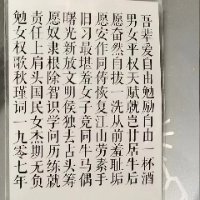 吾辈爱自由勉励自由一杯酒
男女平权天赋就岂甘居牛后
愿奋然自拔一洗从前羞耻垢
愿安作同俦恢复江山劳素手
旧习最堪羞女子竟同牛马偶
曙光新放文明侯独去占头筹
愿奴隶根除智识学问历练就
责任上肩头国民女杰期无负
勉女权歌秋瑾词一九〇七年